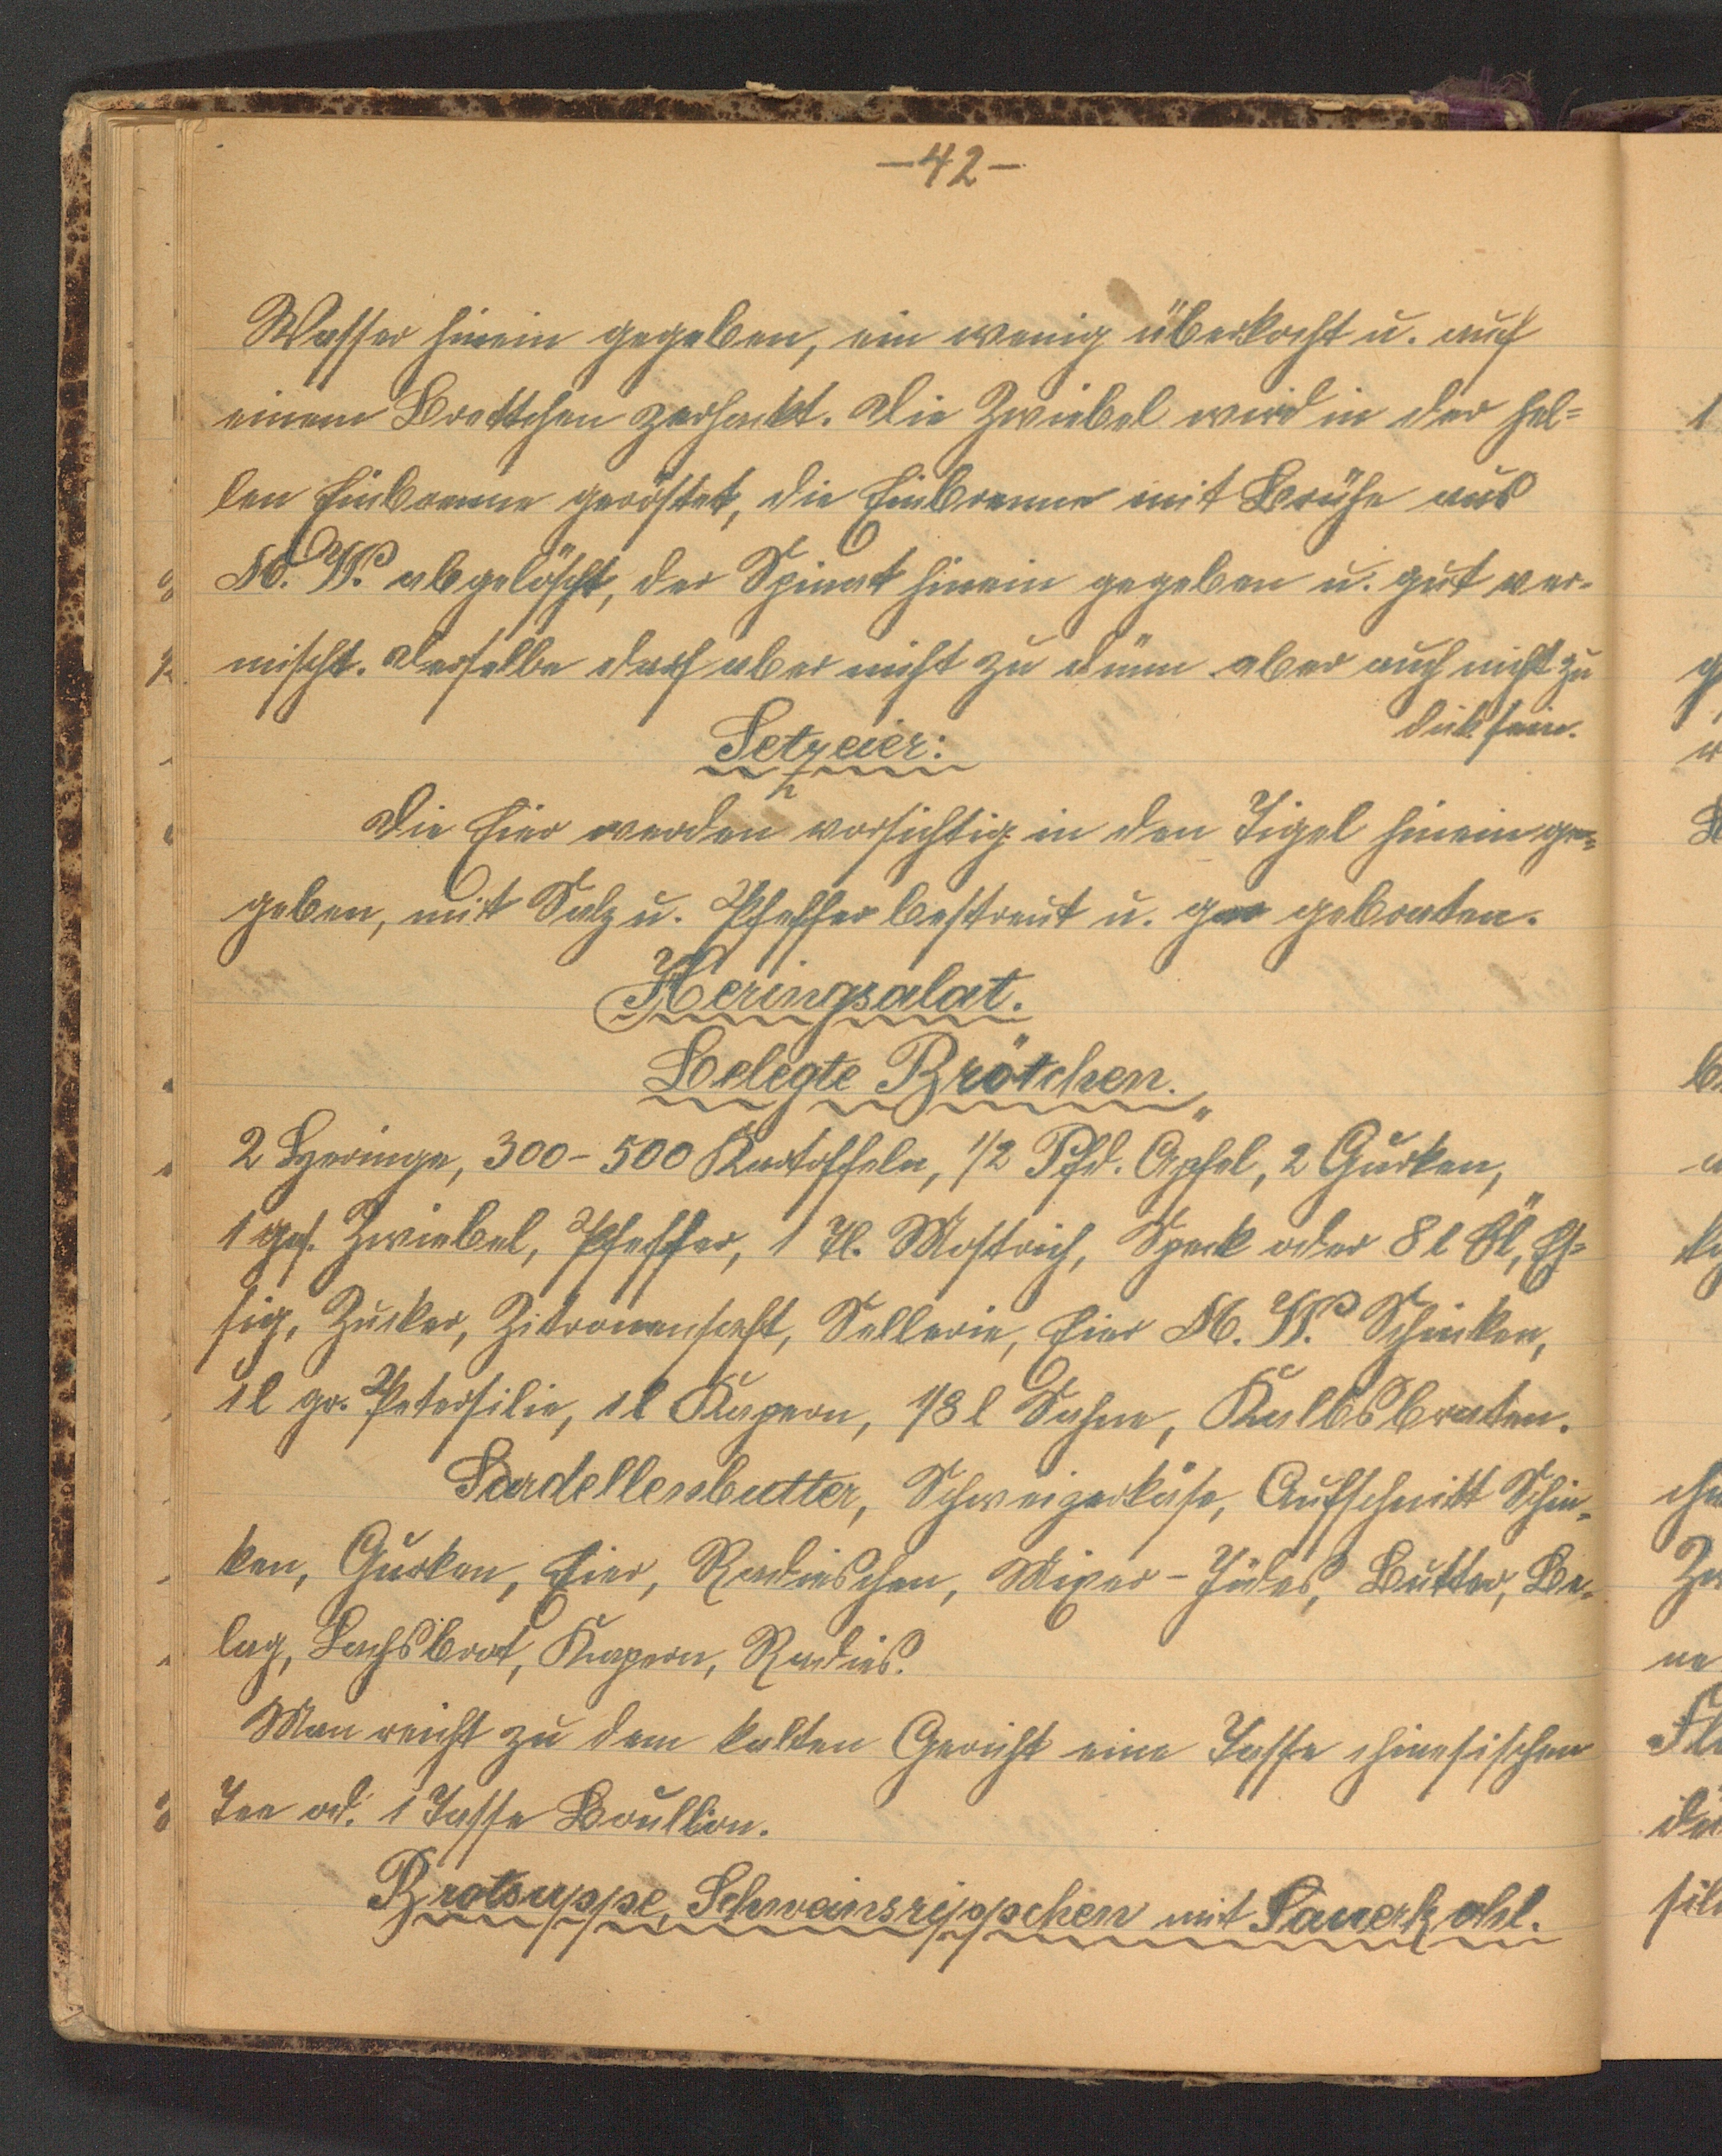 —42—
Wasser hinein gegeben, ein wenig überkocht u. auf
einem Brettchen zerhackt. Die Zwiebel wird in der hel=
len Einbrenne geröstet, die Einbrenne mit Brühe aus
M. W. abgelöscht, der Spinat hinein gegeben u. gut ver-
mischt. Derselbe darf aber nicht zu dünn aber auch nicht zu
dick sein.
Setzeier:
Die Eier werden vorsichtig in den Tigel hinein ge=
geben, mit Salz u. Pfeffer bestreut u. gar gebraten.
Heringsalat.
Belegte Brötchen.
2 Heringe, 300-500 Kartoffeln, 1/2 Pfd. Äpfel, 2 Gurken,
1 ger. Zwiebel, Pfeffer, 1 Tl. Mostrich, Speck oder 8 l Öl, Es=
sig, Zucker, Zitronensaft, Sellerie, Eier M. W. Schinken,
1 l gr. Petersilie, 1 l Kapern, 1/8 l Sahne, Kalbsbraten.
Sardellenbutter, Schweizerkäse, Aufschnitt Schin-
ken, Gurken, Eier, Radieschen, Butter, Be-
lag, Lachsbrot, Kapern, Radies.
Man reicht zu dem kalten Gericht eine Tasse chinesischen
Tee od. 1 Tasse Boullion.
Brotsuppe, Schweinsrippchen mit Sauerkohl.